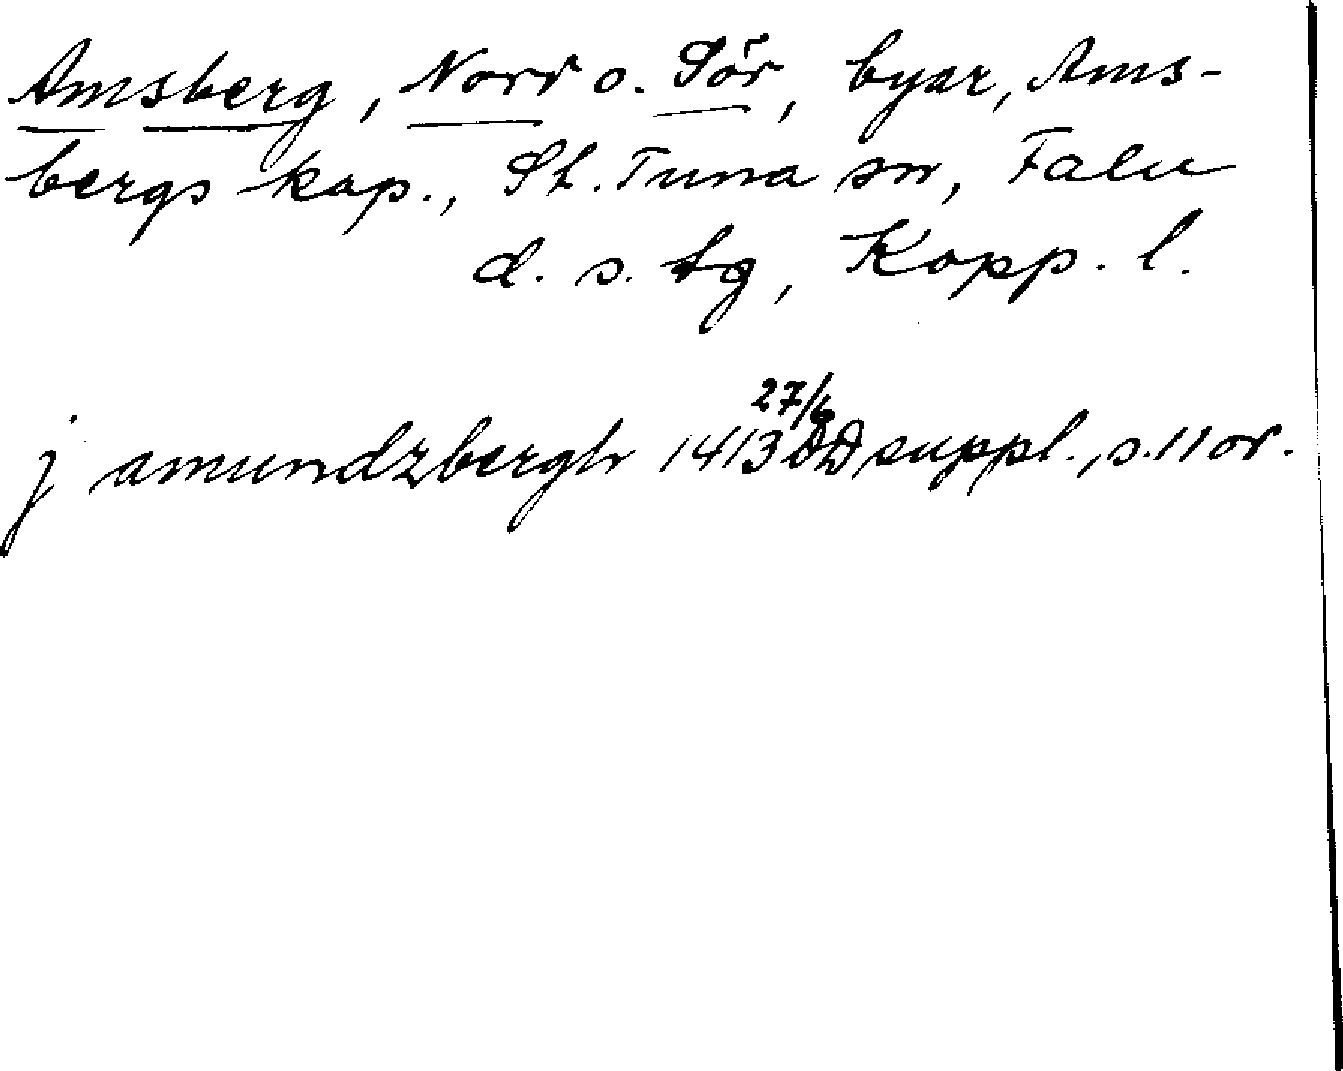 Amsberg, Norr o. Sör, byar, Ams-
bergs kap., St. Tuna sn, Falu
d. s. tg, Kopp. l.
j amundzbergh 1413 27/6 DD suppl., s. 11 or.